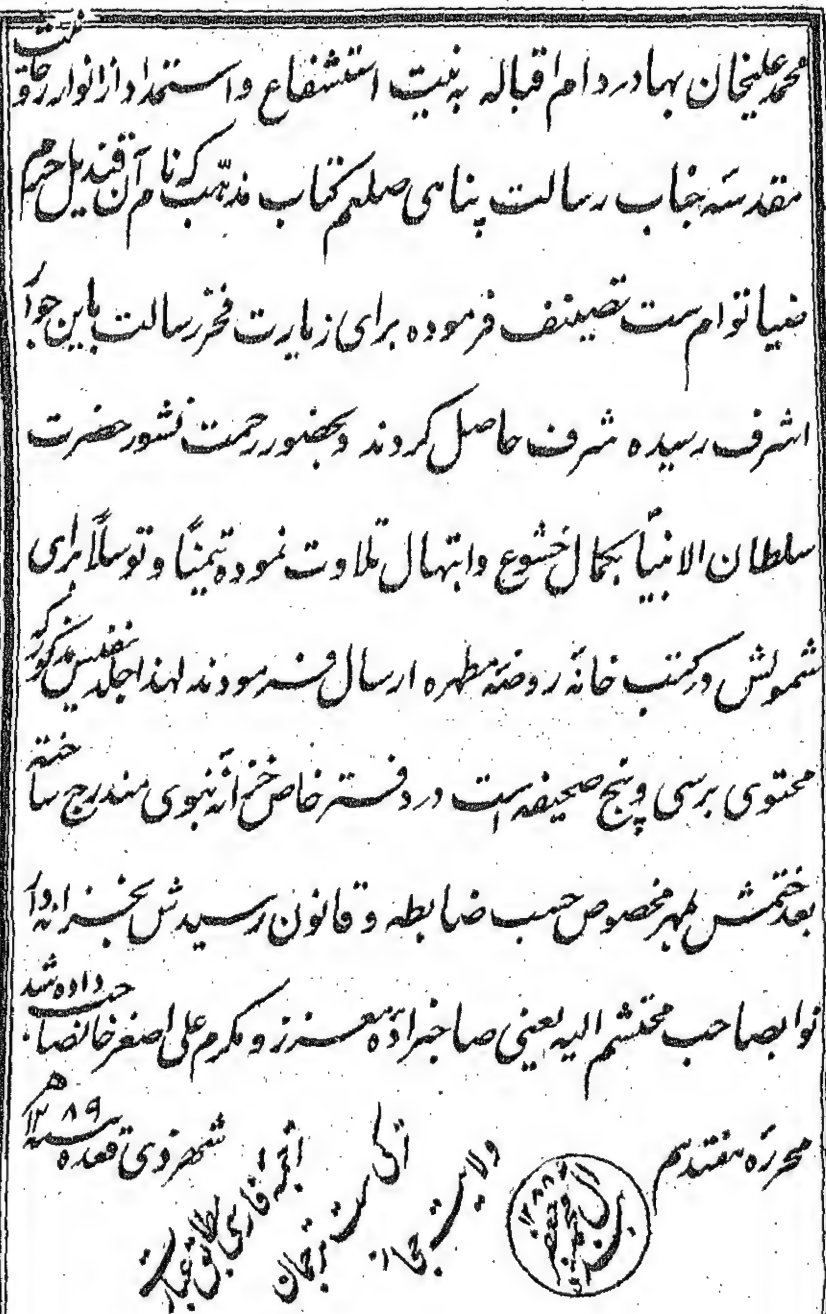 محمد علیخان بهادر دام اقباله به نیت استشفاع و استمداد از انوار روحانیت
مقدسه جناب رسالت پناهی صلعم کتاب مذهب که نام آن قندیل حرم
ضیا توام ست تصنیف فرموده برای زیارت فخر رسالت باین جوار
اشرف رسیده شرف حاصل کردند و بحضور رحمت نشور حضرت
سلطان الانبیاً بکمال خشوع و ابتهال تلاوت نموده تیمناً و توسلاً برای
شمولش در کتب خانهٔ روضهٔ مطهره ارسال فرمودند لهذا جلد نفیس مذکور که
محتوی بر سی و پنج صحیفه است در دفتر خاص خزانهٔ نبوی مندرج ساخته
بعد ختمش بمهر مخصوص حسب ضابطه و قانون رسیدش بخزانه دار
نوابصاحب محتشم الیه یعنی صاحبزادهٔ معزز و مکرم علی اصغر خانصاحب داده شد
محررهٔ هفتدهم شهر ذی قعده سنه ۱۲۸۹ هـ
ترجمهٔ فارسی مطابق عبارت
ترکی ست ترجمان
ولایت حجاز
۱۲۸۸